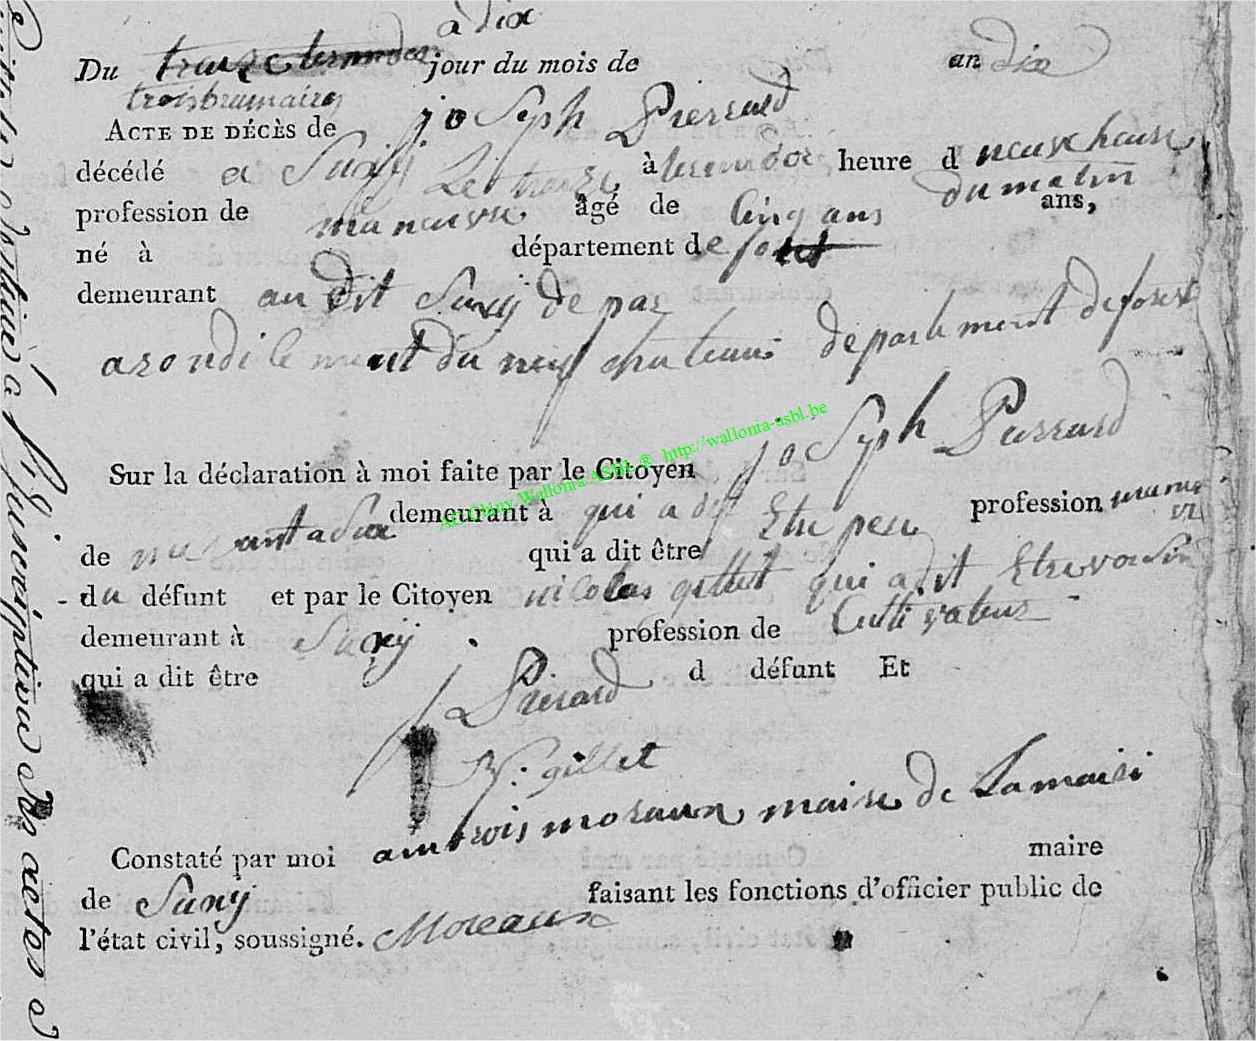 à dix
Du treize jour du mois de an dix
trois brumaires
ACTE DE DÉCÈS de joseph Pierrard
décédé a Sugny Le treize à heure d neuf heure
du matin
profession de manœuvre âgé de Cinq ans ans,
né à département de foret
demeurant au dit Suny de par
arondilement du neuf chateaux departement de forest
Sur la déclaration à moi faite par le Citoyen joseph Pierrard
demeurant à qui a dit Etre peu profession manu
de qui a dit être
du défunt et par le Citoyen nicolas gillet qui a dit Etre voisin
demeurant à Sugny profession de Cultivateur
qui a dit être d défunt Et
j Pierard
N. gillet
Constaté par moi ambrois moraux maire de Lamairi maire
de Suny faisant les fonctions d'officier public de
l'état civil, soussigné. Moreaux
à L'inscription De actes d
http://wallonia-asbl.be